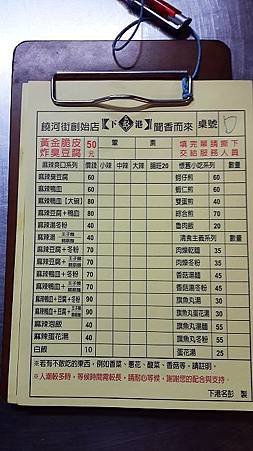 饒河街創始店 下港名彭 聞香而來 桌號
黃金脆皮 50 葷 素 填完單請撕下
炸臭豆腐 元 交給服務人員
麻辣爽口系列 價錢 小辣 中辣 大辣 數量
麻辣臭豆腐 60 蝦仔煎 60
麻辣鴨血 60 蝦仁煎 60
麻辣鴨血【大碗】 80 雙蛋煎 60
麻辣豆腐+鴨血 80 綜合煎 70
麻辣湯冬粉 40 魯肉飯 20
麻辣湯 王子麵 40 清爽主義系列 數量
麻辣豆腐+冬粉 70 肉燥乾麵 35
麻辣豆腐+ 王子麵 70 肉燥冬粉 35
麻辣鴨血+冬粉 70 香菇湯麵 35
麻辣鴨血+ 王子麵 70 香菇湯冬粉 35
麻辣鴨血+豆腐+冬粉 90 旗魚丸湯 30
麻辣鴨血+豆腐+ 王子麵 90 旗魚丸蛋花湯 30
麻辣泡飯 40 旗魚丸湯麵 55
麻辣蛋花湯 40 旗魚丸湯冬粉 55
白飯 10 蛋花湯 25
※若有不敢吃的東西,例如香菜、蔥花、酸菜、香菇等,請註明。
※人潮較多時,等候時間需較長,請耐心等候,謝謝您的配合與支持。
下港名彭 製